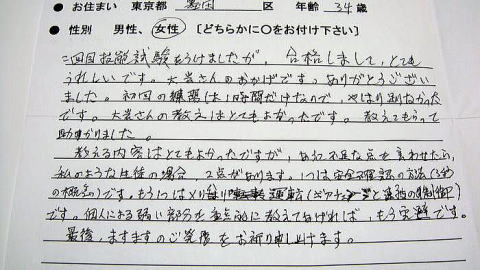 ● お住まい 東京都 墨田 区 年齢 34歳
● 性別 男性、女性 〔どちらかに〇をお付け下さい〕
二回目技能試験をうけましたが、合格しまして、とても
うれしいです。大岩さんのおかげです。ありがとうござい
ました。初回の練習は1時間だけなので、やはり別れなかった
です。大岩さんの教えはとてもよかったです。教えてもらって
助かりました。
教える内容はとてもよかったですが、あえて不足な点を言わせたら、
私のような生徒の場合、2点があります。1つは安全確認の方法(
の概念)です。もう1つはメリハリ運転(
です。個人による弱い部分を重点的に教えてあげれば、もう完璧です。
最後、ますますのご発展をお祈り申し上げます。